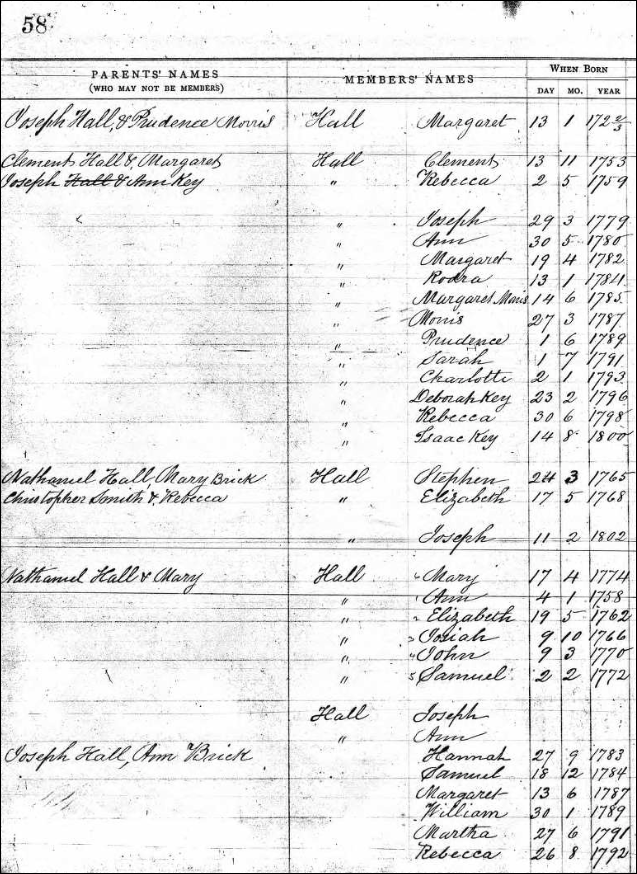 58
PARENTS' NAMES
(WHO MAY NOT BE MEMBERS)
MEMBERS' NAMES
WHEN BORN
DAY MO. YEAR
Joseph Hall, & Prudence Morris Hall Margaret 13 1 172 2/3
Clement Hall & Margaret Hall Clement 13 11 1753
Joseph Hall & Ann Key " Rebecca 2 5 1759
" Joseph 29 3 1779
" Ann 30 5 1780
" Margaret 19 4 1782
" Rodra 13 1 1784
" Margaret Morris 14 6 1785
" Morris 27 3 1787
" Prudence 1 6 1789
" Sarah 1 7 1791
" Charlotte 2 1 1793
" Deborah Key 23 2 1796
" Rebecca 30 6 1798
" Isaac Key 14 8 1800
Nathaniel Hall, Mary Brick Hall Stephen 24 3 1765
Christopher Smith & Rebecca " Elizabeth 17 5 1768
" Joseph 11 2 1802
Nathaniel Hall & Mary Hall Mary 17 4 1774
" Ann 4 1 1758
" Elizabeth 19 5 1762
" Josiah 9 10 1766
" John 9 3 1770
" Samuel 2 2 1772
Hall Joseph
" Ann
Joseph Hall, Ann Brick Hannah 27 9 1783
Samuel 18 12 1784
Margaret 13 6 1787
William 30 1 1789
Martha 27 6 1791
Rebecca 26 8 1792